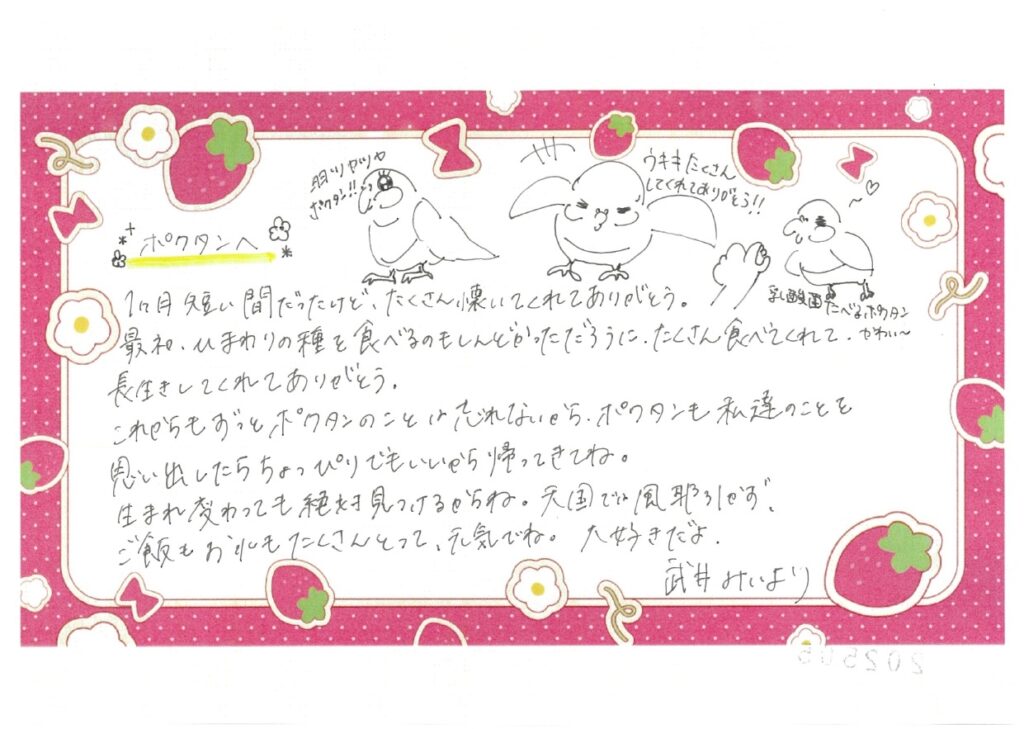 羽ツヤツヤ
ポクタン!!
ウキキたくさん
してくれてありがとう!!
乳酸菌たべるポクタン
かわい〜
ポクタンへ
1ヶ月短い間だったけど、たくさん懐いてくれてありがとう。
最初、ひまわりの種を食べるのもしんどかっただろうに、たくさん食べてくれて、
長生きしてくれてありがとう。
これからもずっとポクタンのことは忘れないから、ポクタンも私達のことを
思い出したらちょっぴりでもいいから帰ってきてね。
生まれ変わっても絶対見つけるからね。天国では風邪ひかず、
ご飯もお水もたくさんとって、元気でね。大好きだよ.
武井みいより
202505